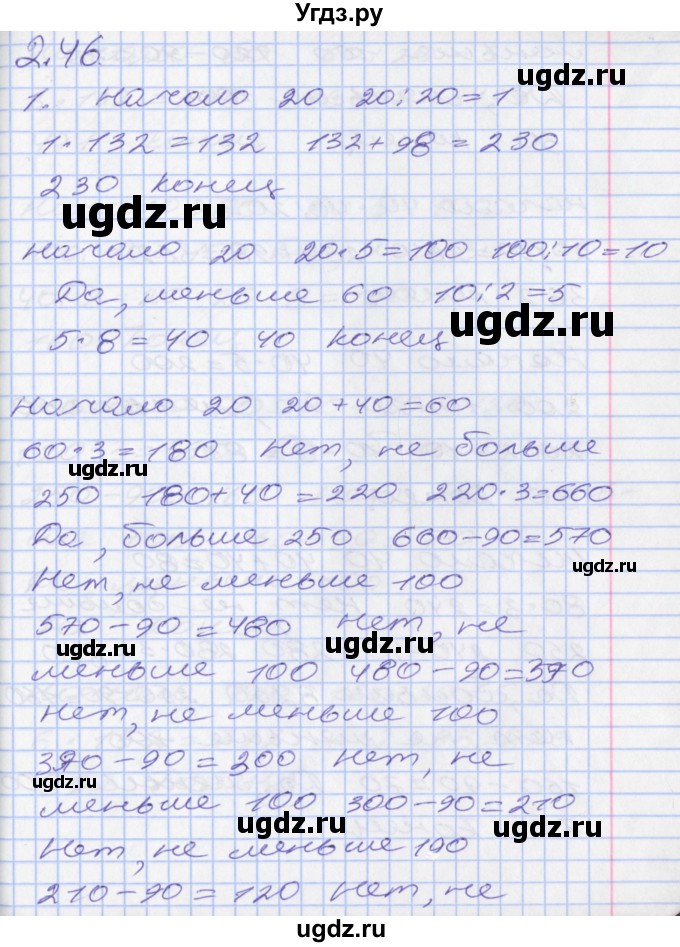 Угдз.ру
2.46
1. Начало 20 20:20=1
1·132=132 132+98=230
230 конец
Начало 20 20·5=100 100:10=10
Да, меньше 60 10:2=5
5·8=40 40 конец
Начало 20 20+40=60
60·3=180 Нет, не больше
250 180+40=220 220·3=660
Да, больше 250 660-90=570
Нет, не меньше 100
570-90=480 Нет, не
меньше 100 480-90=390
Нет, не меньше 100
390-90=300 Нет, не
меньше 100 300-90=210
Нет, не меньше 100
210-90=120 Нет, не
ugdz.ru
ugdz.ru
ugdz.ru
ugdz.ru
ugdz.ru
ugdz.ru
ugdz.ru
ugdz.ru
ugdz.ru
ugdz.ru
ugdz.ru
ugdz.ru